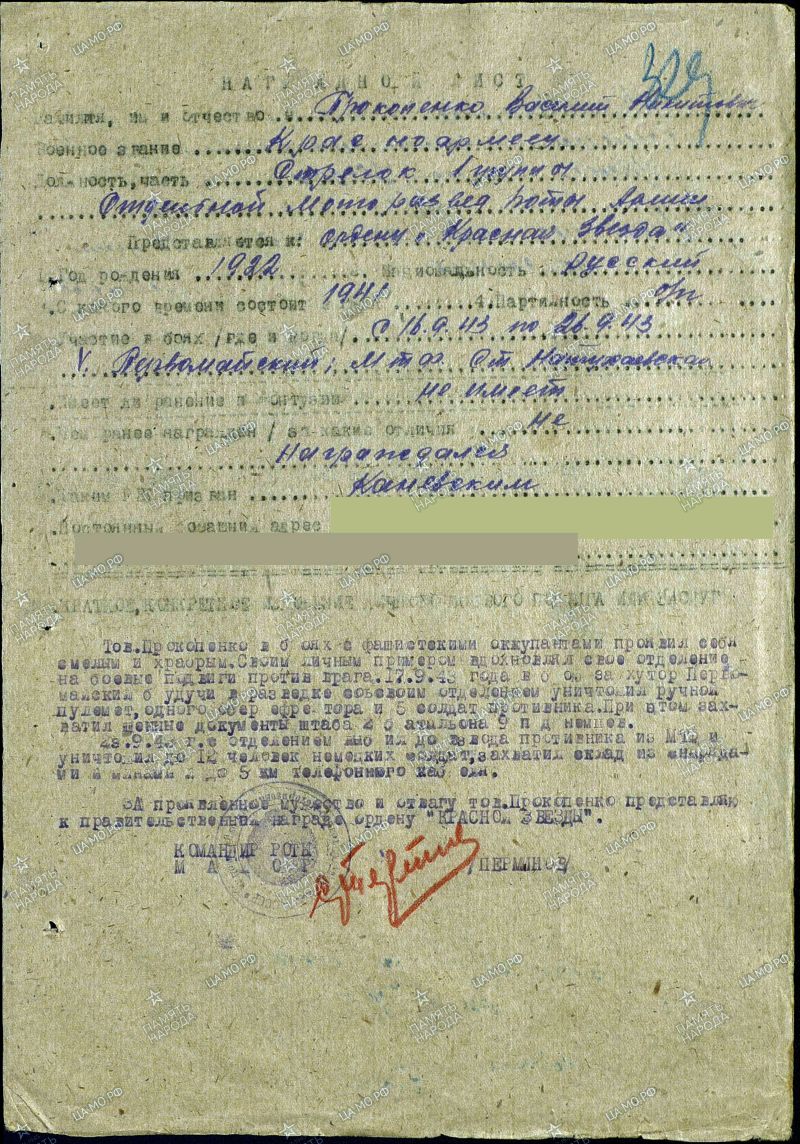 НАГРАДНОЙ ЛИСТ
329
Фамилия, имя и отчество Прокопенко Василий
Военное звание Красноармеец
Должность, часть Стрелок 1 группы
Отдельной Моторазвед роты Армии
Представляется к: ордену "Красная Звезда"
1. Год рождения 1922 Национальность русский
С какого времени состоит 1941 4. Партийность б/п
Участие в боях /где и когда/ с 16.9.43 по 26.9.43
х. Первомайский; Мтф Ст. Натухаевская
Имеет ли ранение и контузии не имеет
Чем ранее награжден /за какие отличия не
Награждался
Каким РВК призван Каневским
Постоянный домашний адрес
КРАТКОЕ, КОНКРЕТНОЕ ИЗЛОЖЕНИЕ ЛИЧНОГО БОЕВОГО ПОДВИГА ИЛИ ЗАСЛУГ
Тов.Прокопенко в боях с фашистскими оккупантами проявил себя
смелым и храбрым.Своим личным примером вдохновлял свое отделение
на боевые подвиги против врага.17.9.43 года в бою за хутор Перво-
майский будучи в разведке со своим отделением уничтожил ручной
пулемет, одного обер ефретора и 5 солдат противника.При этом зах-
ватил ценные документы штаба 2 батальона 9 п д немцев.
23.9.43 г.с отделением выбил до взвода противника из МТФ и
уничтожил до 12 человек немецких солдат,захватил склад из снаряда-
ми и минами и до 5 км телефонного кабеля.
ЗА проявленное мужество и отвагу тов.Прокопенко представляю
к правительственной награде ордену "КРАСНОЙ ЗВЕЗДЫ".
КОМАНДИР РОТЫ
МАЙОР /ПЕРМИНОВ/
ПАМЯТЬ НАРОДА
ЦАМО.РФ